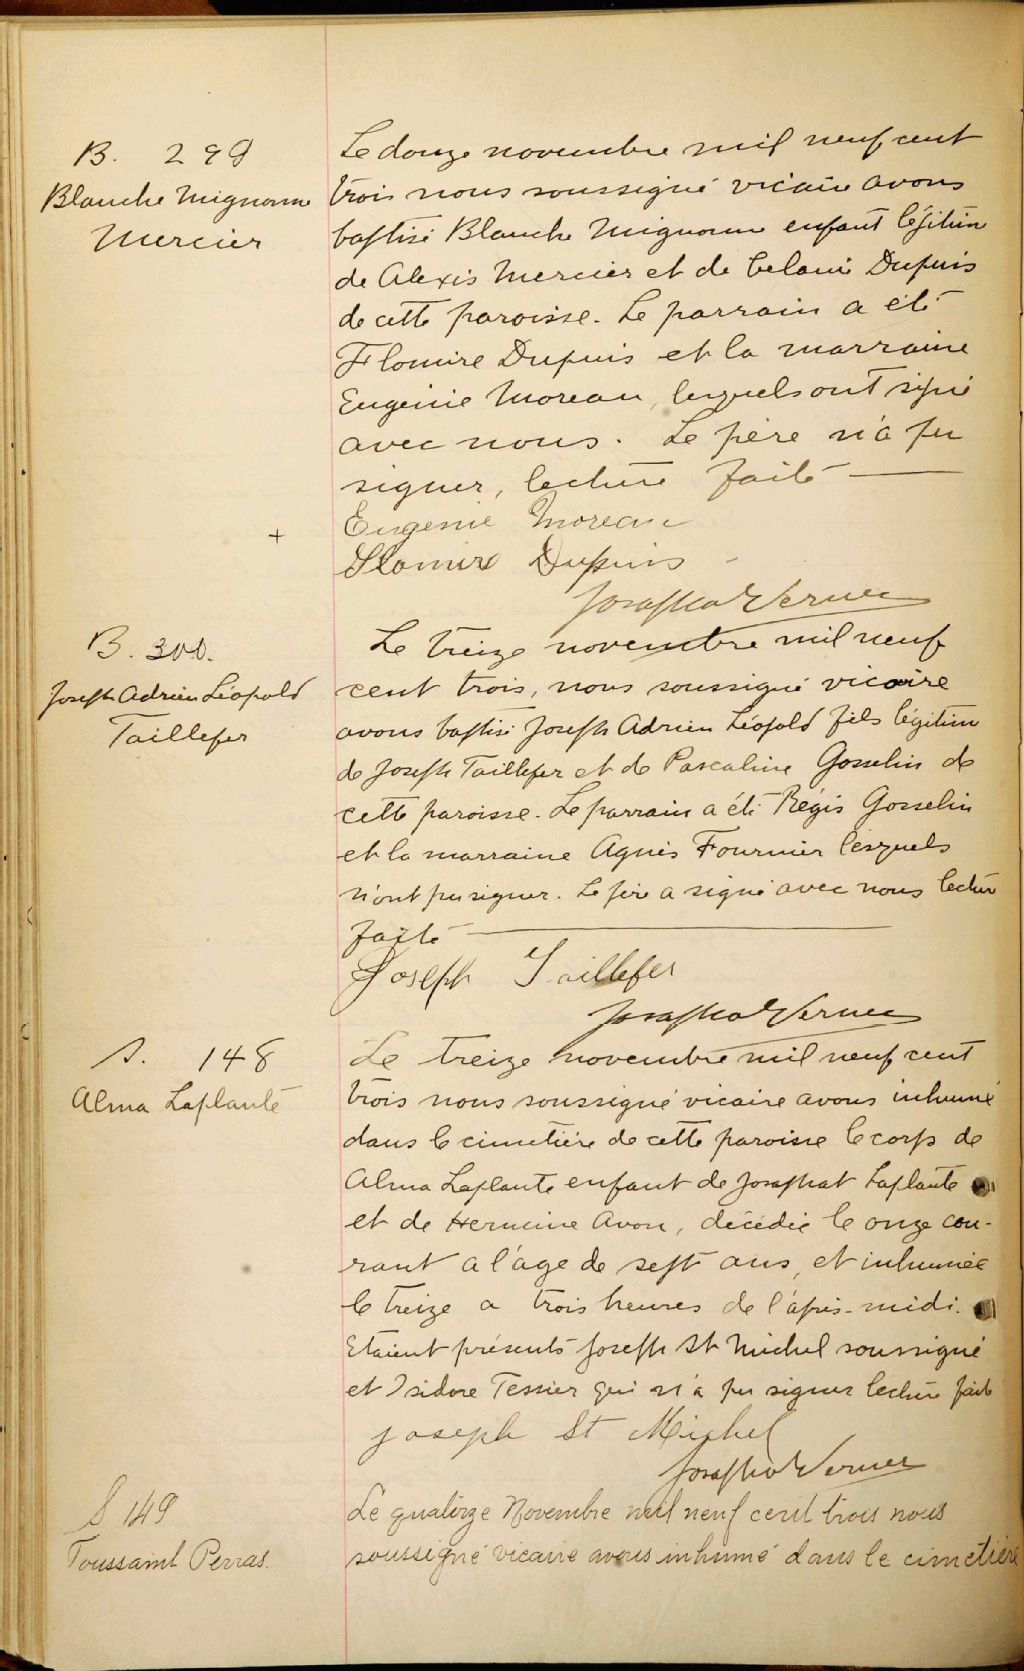 B. 299
Blanche Mignonne
Mercier
Le douze novembre mil neuf cent
trois nous soussigné vicaire avons
baptisé Blanche Mignonne enfant légitim
de Alexis Mercier et de Delani Dupuis
de cette paroisse. Le parrain a été
Flomire Dupuis et la marraine
Eugénie Moreau, lesquels ont signé
avec nous. Le père n'a pu
signer, lecture faite
Eugenie Moreau
+
Flomire Dupuis
B. 300.
Joseph Adrien Léopold
Taillefer
Le treize novembre mil neuf
cent trois, nous soussigné vicaire
avons baptisé Joseph Adrien Léopold fils légitim
de Joseph Taillefer et de Pascaline Gosselin de
cette paroisse. Le parrain a été Régis Gosselin
et la marraine Agnès Fournier lesquels
n'ont pu signer. Le père a signé avec nous lecture
faite
Joseph Taillefer
S. 148
Alma Laplante
Le treize novembre mil neuf cent
trois nous soussigné vicaire avons inhumé
dans le cimetière de cette paroisse le corps de
Alma Laplante enfant de Josaphat Laplante
et de Hermine Avon, décédée le onze cou-
rant a l'âge de sept ans, et inhumée
le treize a trois heures de l'après-midi.
Etaient présents Joseph St Michel soussigné
et Isidore Tessier qui n'a pu signer lecture faite
Joseph St Michel
S 149
Toussaint Perras.
Le quatorze Novembre mil neuf cent trois nous
soussigné vicaire avons inhumé dans le cimetière